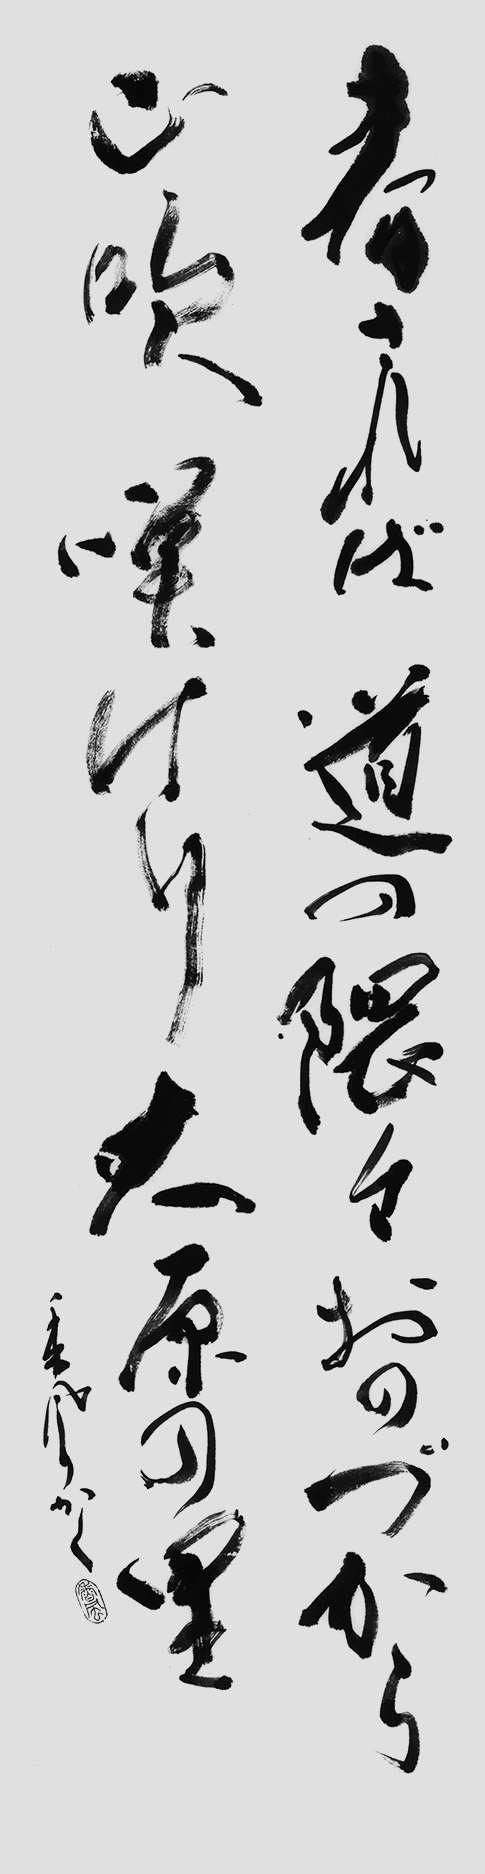 春されば 道の隈々 おのづから
山吹 咲けり 大原の里
かく